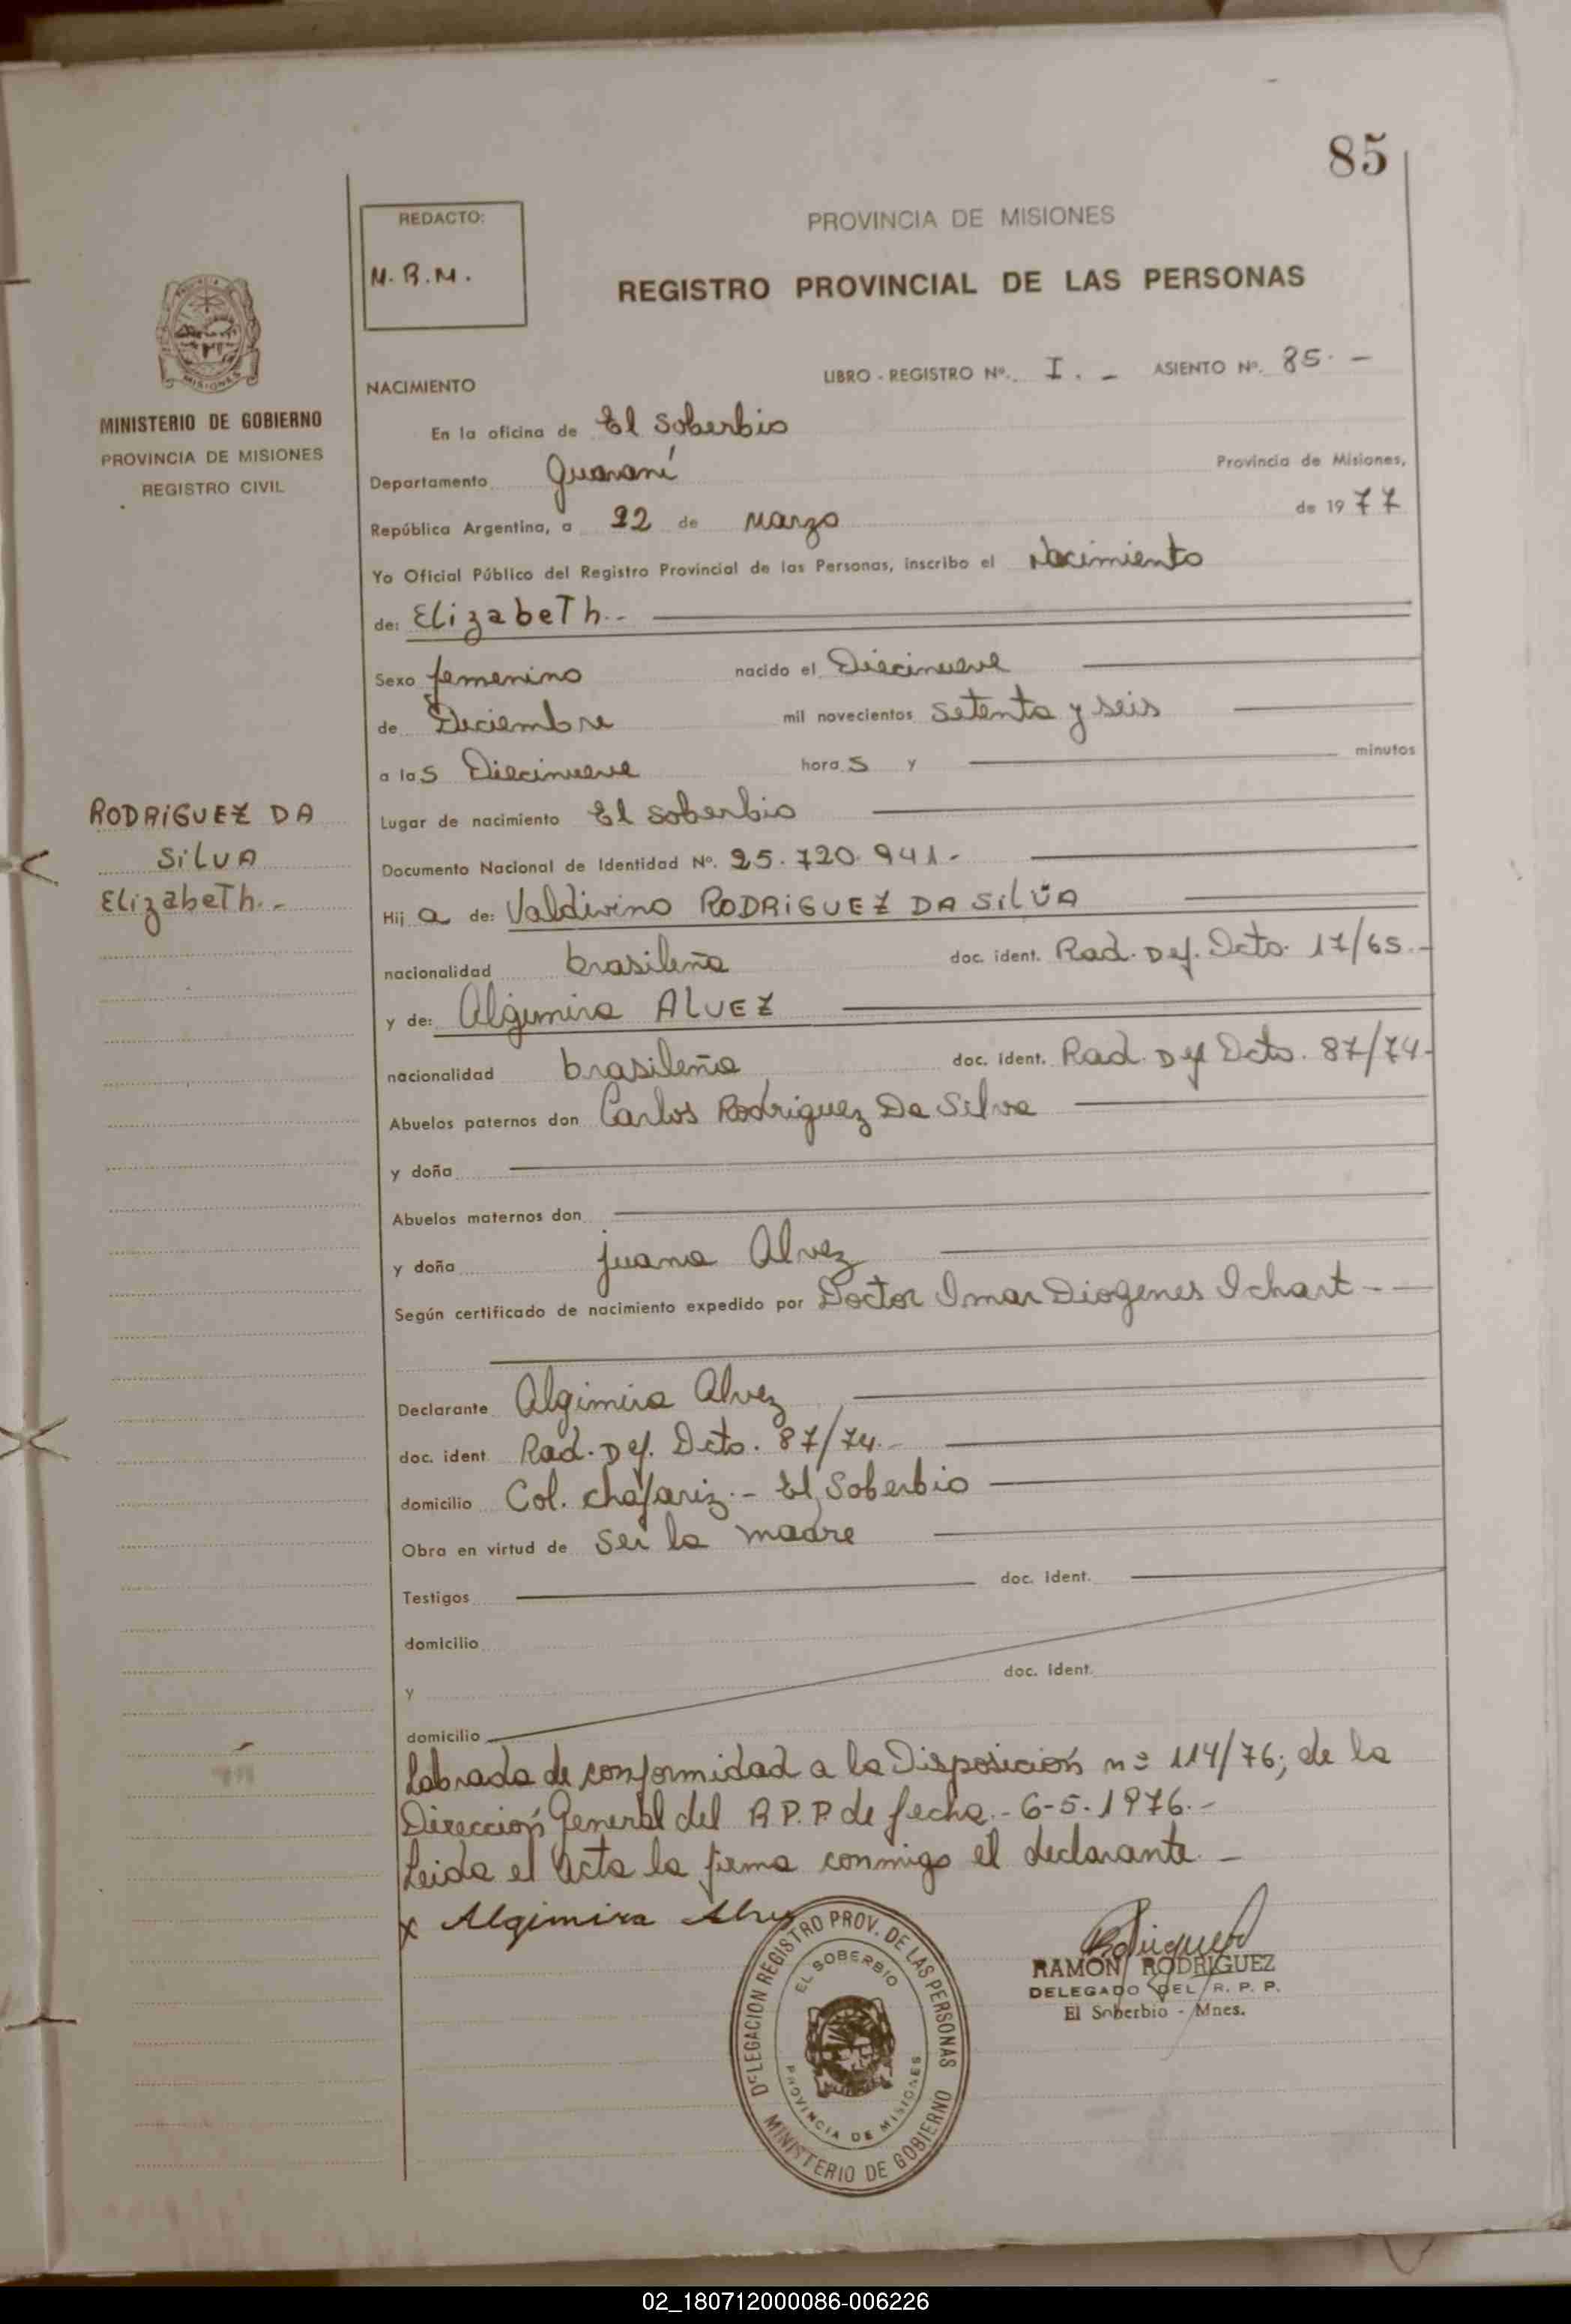 85
REDACTO:
M.R.M.
PROVINCIA DE MISIONES
REGISTRO PROVINCIAL DE LAS PERSONAS
MISIONES
MINISTERIO DE GOBIERNO
PROVINCIA DE MISIONES
REGISTRO CIVIL
RODRiGUEZ DA
SiLVA
ElizabeTh.-
NACIMIENTO
LIBRO - REGISTRO Nº. I. - ASIENTO Nº. 85. -
En la oficina de El Soberbio
Departamento Guaraní Provincia de Misiones,
República Argentina, a 22 de Marzo de 1977
Yo Oficial Público del Registro Provincial de las Personas, inscribo el Nacimiento
de: ElizabeTh.-
Sexo femenino nacido el Diecinueve
de Diciembre mil novecientos setenta y seis
a las Diecinueve horas y minutos
Lugar de nacimiento El Soberbio
Documento Nacional de Identidad Nº. 25.720.941-
Hija de: Valdivino RODRiGUEZ DA SiLVA
nacionalidad brasileña doc. ident. Rad. Def. Dcto. 17/65.-
y de: Algimira ALVEZ
nacionalidad brasileña doc. ident. Rad. Def Dcto. 87/74-
Abuelos paternos don Carlos Rodriguez Da Silva
y doña
Abuelos maternos don
y doña Juana Alvez
Según certificado de nacimiento expedido por Doctor Imar Diogenes Ichart -
Declarante Algimira Alvez
doc. ident. Rad. Def. Dcto. 87/74.-
domicilio Col. chafariz.- El Soberbio
Obra en virtud de Ser la madre
Testigos doc. ident.
domicilio
y doc. ident.
domicilio
Labrada de conformidad a la Disposición nº 114/76; de la
Dirección General del R.P.P. de fecha.- 6-5-1976.-
Leida el acta la firma conmigo el declarante.-
x Algimira Alvez
DELEGACION REGISTRO PROV. DE LAS PERSONAS
EL SOBERBIO
PROVINCIA DE MISIONES
MINISTERIO DE GOBIERNO
Rodriguez
RAMON RODRIGUEZ
DELEGADO DEL R. P. P.
El Soberbio - Mnes.
02_180712000086-006226